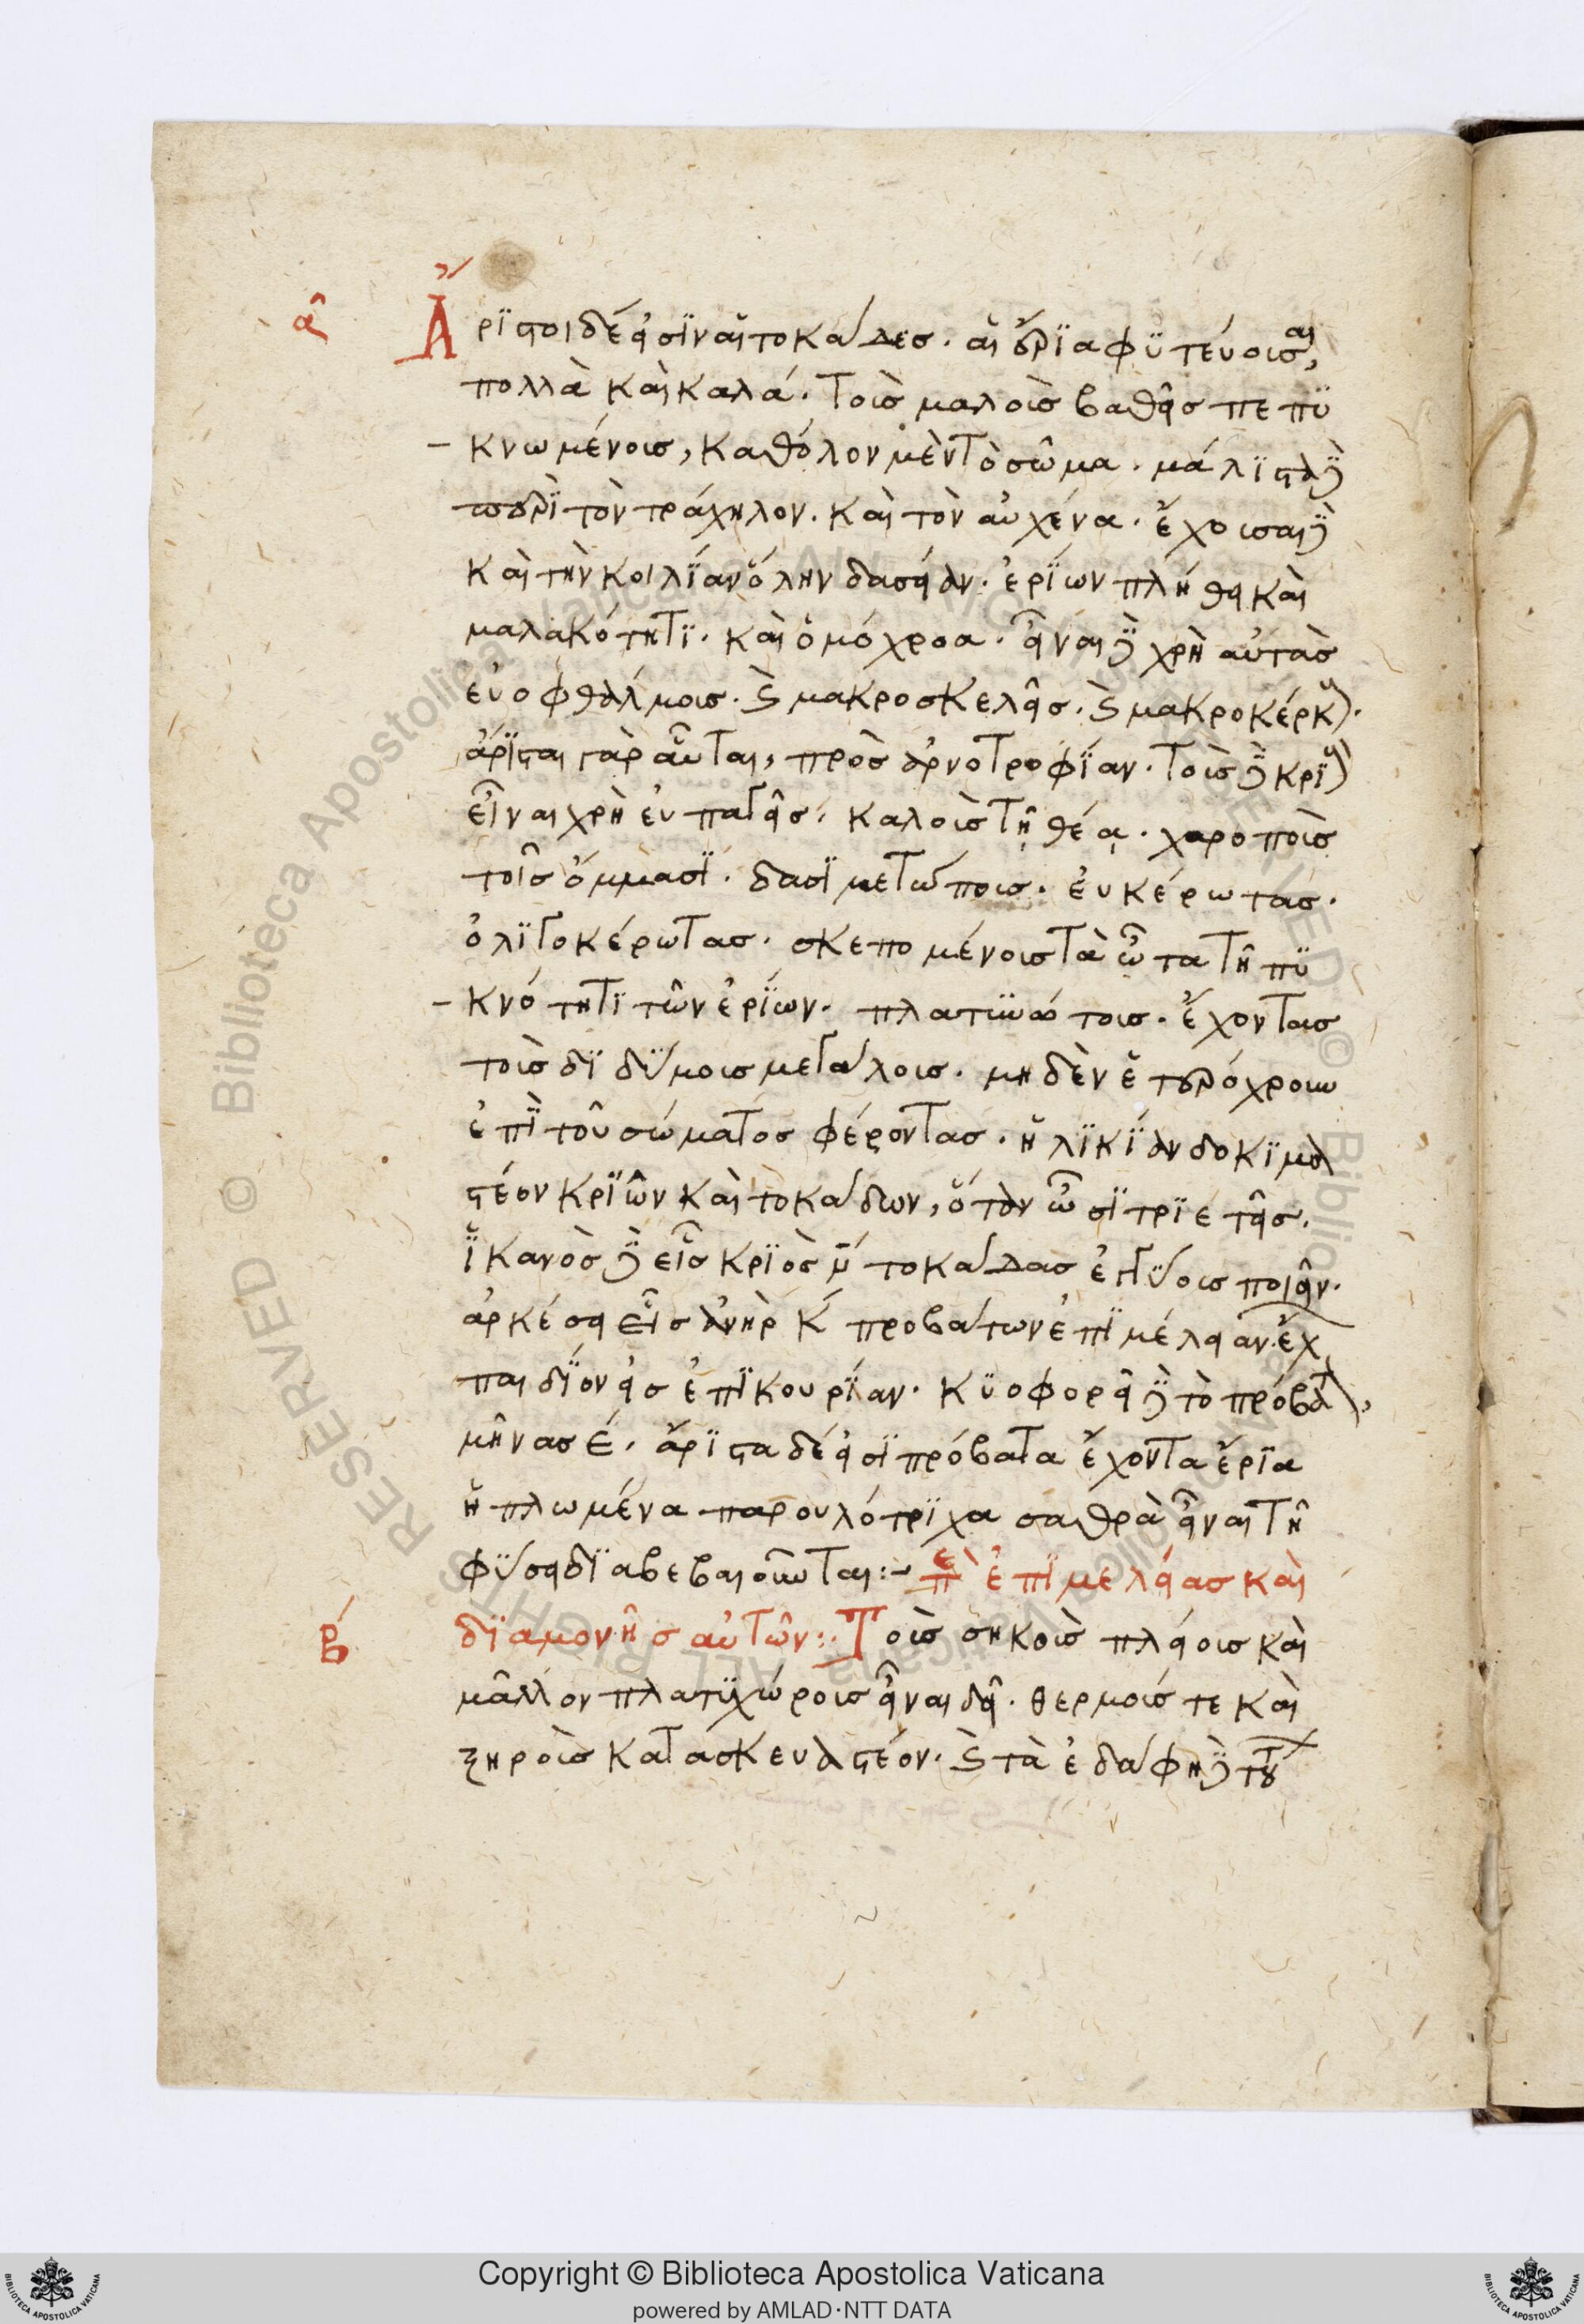 α
Ἄριστοι δέ εἰσϊν αἱ τοκάδες. αἱ ἔρϊα φϋτεύοισαι,
πολλὰ καὶ καλά. τοῖς μαλοῖς βαθεῖς πεπϋ
- κνωμένοις, καθόλον μὲν τὸ σῶμα. μάλϊστα δὲ
περὶ τὸν τράχηλον. καὶ τὸν αὐχένα. ἔχοισαι δὲ
καὶ τὴν κοιλΐαν ὅλην δασείαν. ἐρΐων πλήθει καὶ
μαλακότητϊ. καὶ ὁμόχροα. εἶναι δὲ χρὴ αὐτὰς
εὐοφθάλμοις. καὶ μακροσκελεῖς. καὶ μακροκέρκους.
ἄρϊσται γὰρ αὗται, πρὸς ἀρνοτροφΐαν. τοὶς δὲ κρϊοὺς
εἶναι χρὴ εὐπαγεῖς. καλοὶς τῇ θέᾳ. χαροποὶς
τοῖς ὄμμασϊ. δασϊμετώποις. ἐυκέρωτας.
ὀλϊγοκέρωτας. σκεπομένοις τὰ ὦτα τῆ πϋ
- κνότητϊ τῶν ἐρΐων. πλατϋνώτοις. ἔχοντας
τοὶς δϊδΰμοις μεγάλοις. μηδὲν ἑτερόχροιω
ἐπῒ τοῦ σώματος φέροντας. ἡλϊκΐαν δοκϊμα
στέον κρϊῶν καὶ τοκάδων, ὅταν ὦσϊ τρϊετεῖς.
ἱκανὸς δὲ εἷς κρϊὸς μ̄ τοκάδας ἐγγΰοις ποιεῖν.
ἀρκέσει εἷς ἀνὴρ κ́ προβάτων ἐπϊμέλειαν. ἔχ
παιδΐον εἰς ἐπϊκουρΐαν. κϋοφορεῖ δὲ τὸ πρόβατ,
μῆνας έ. ἄρϊστα δέ εἰσϊ πρόβατα ἔχοντα ἔρϊα
ἡπλωμένα. τὰ γὰρ οὐλότρϊχα σαθρὰ εἶναι τῆ
φΰσει δϊαβεβαιοῦται:- περὶ ἐπϊμελείας καὶ
β́
δϊαμονῆς αὐτῶν:· Τοὶς σηκοὶς πλείοις καὶ
μᾶλλον πλατϋχώροις εἶναι δεῖ. θερμοίς τε καὶ
ξηροὶς κατασκευαστέον. καὶ τὰ ἐδάφη δὲ τού